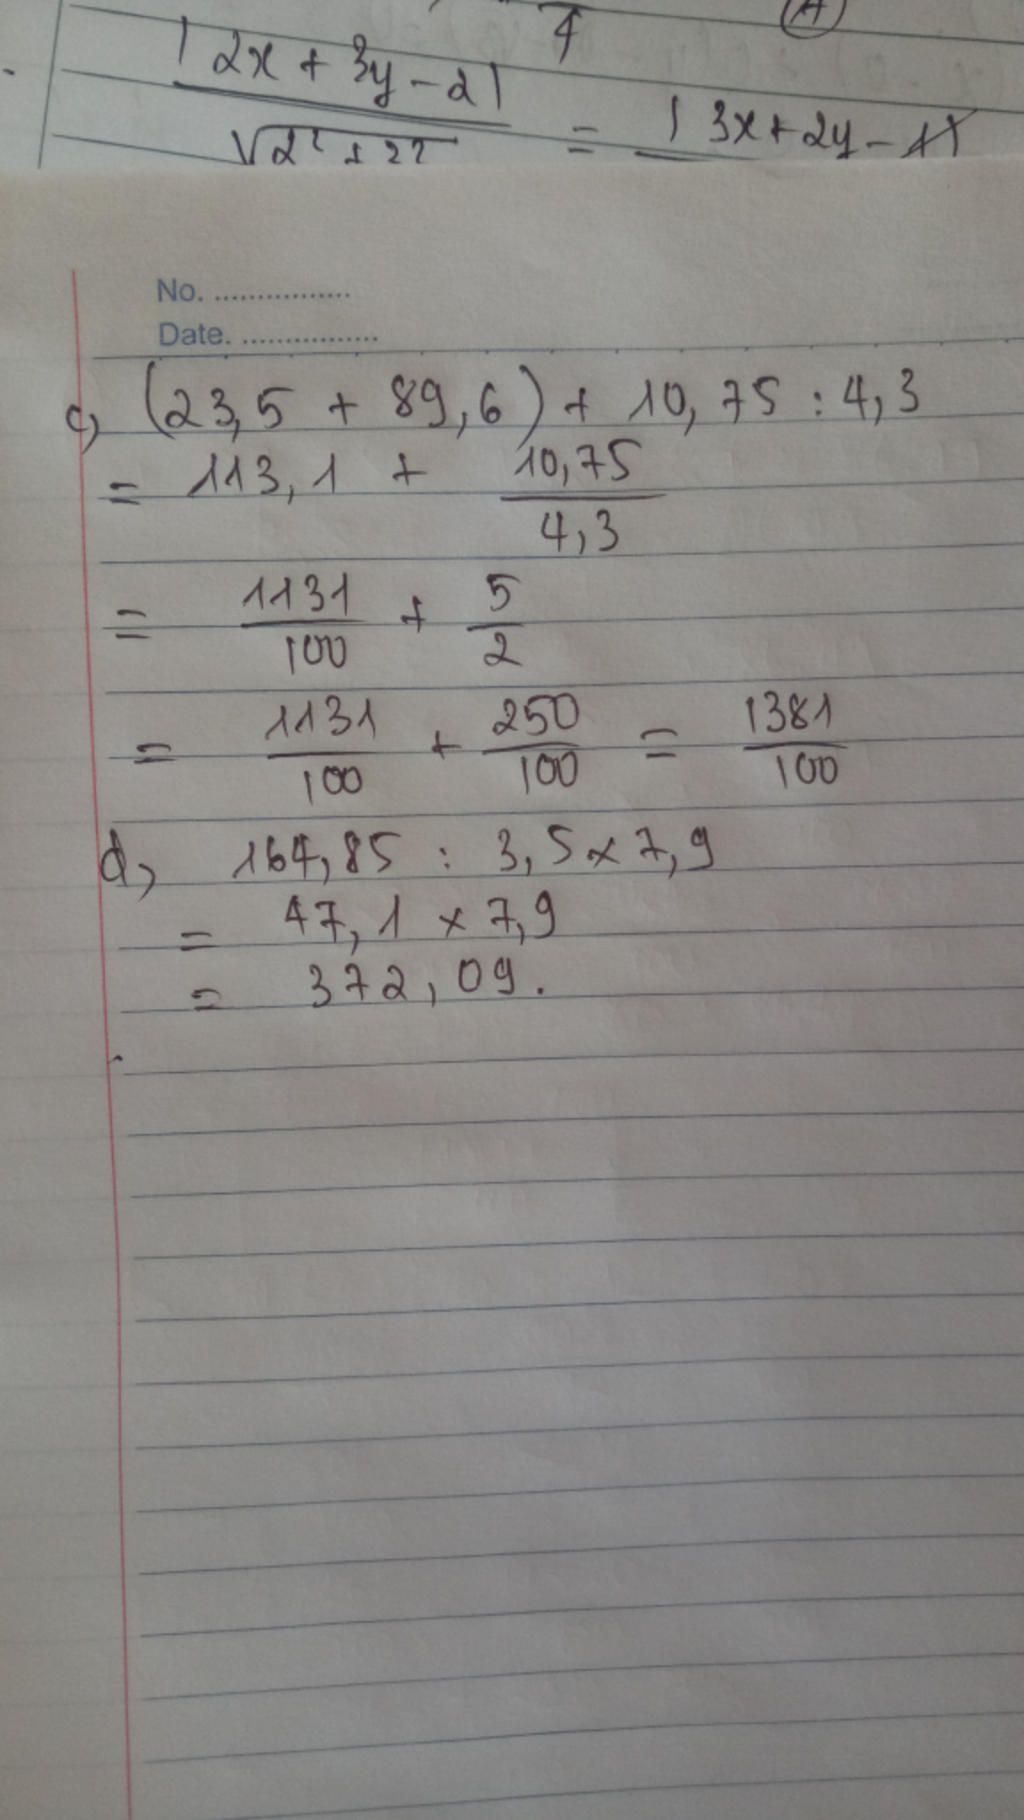 4 A
|2x + 3y - 2|
= |3x + 2y - 1|
√2² + 2²
No. ................
Date. ................
c, (23,5 + 89,6) + 10,75 : 4,3
= 113,1 + 10,75/4,3
= 1131/100 + 5/2
= 1131/100 + 250/100 = 1381/100
d, 164,85 : 3,5 x 7,9
= 47,1 x 7,9
= 372,09.